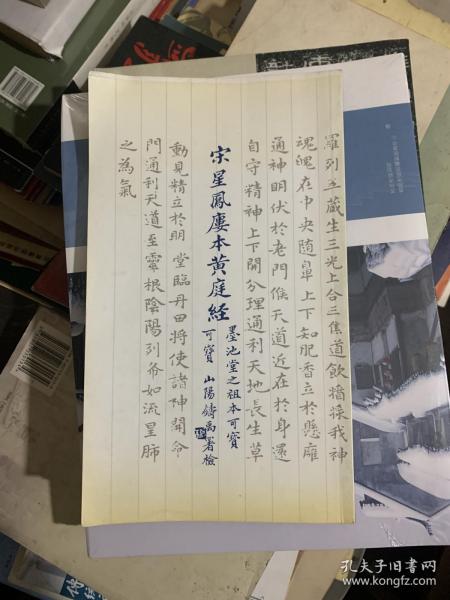 羅列五藏生三光上合三焦道飲醬漿我神
魂魄在中央随鼻上下知肥香立於懸廱
通神明伏於老門候天道近在於身還
自守精神上下開分理通利天地長生草
宋星鳳廔本黃庭經
墨池堂之祖本可寶
可寶 山陽鑄禹署檢
動見精立於明堂臨丹田將使諸神開命
門通利天道至靈根陰陽列布如流星肺
之為氣
孔夫子旧书网
www.kongfz.com